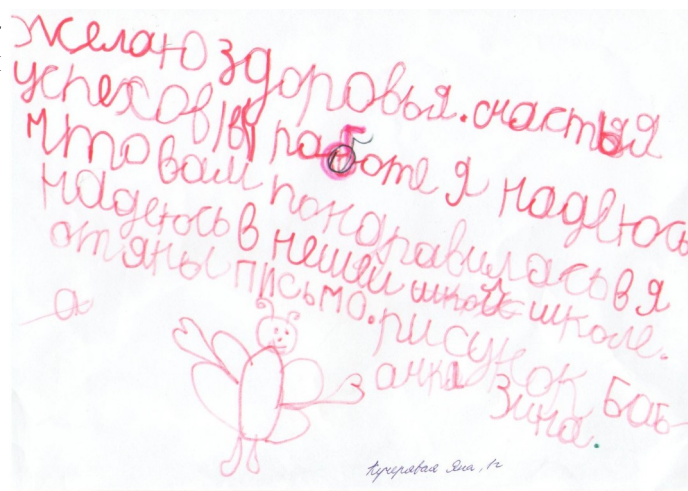 Желаю здоровья.счастья
успехов в работе я надеюсь
что вам пондравилась в я
надеюсь в нешей школе.
от яны письмо.рисунок баб-
очка Зина.
а
Кучерявая Яна, 1г